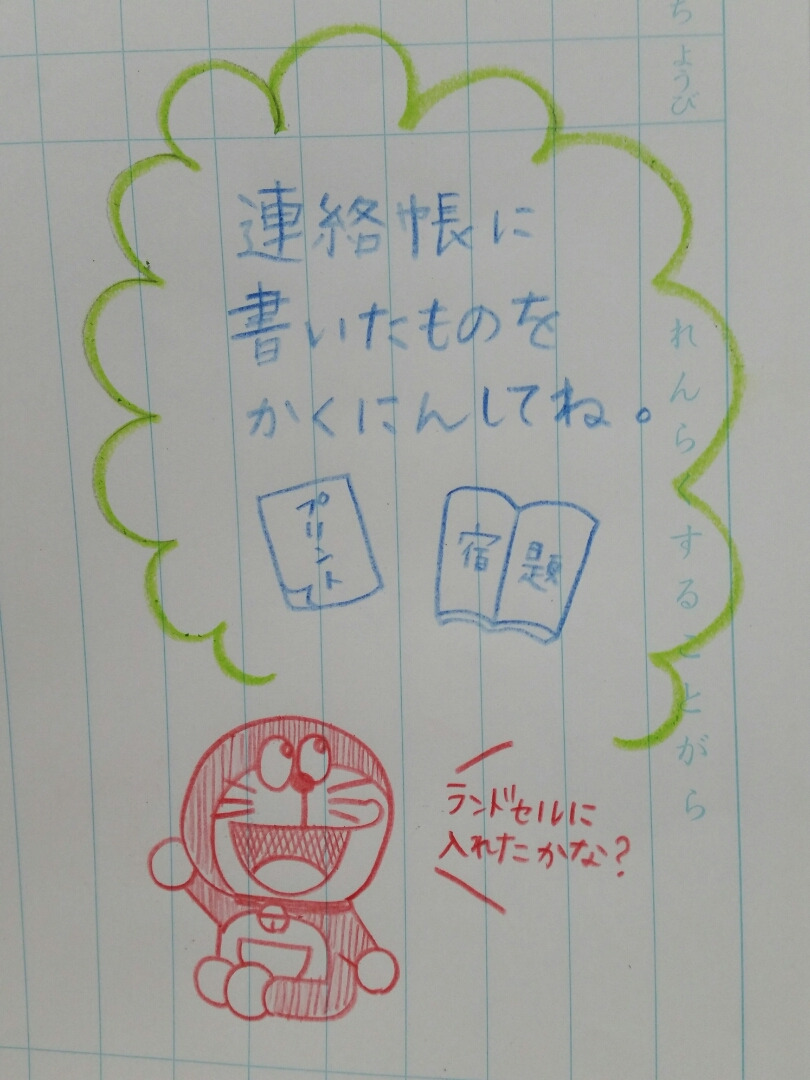 ち
ようび
れんらくすることがら
連絡帳に
書いたものを
かくにんしてね。
プリント
宿題
ランドセルに
入れたかな?